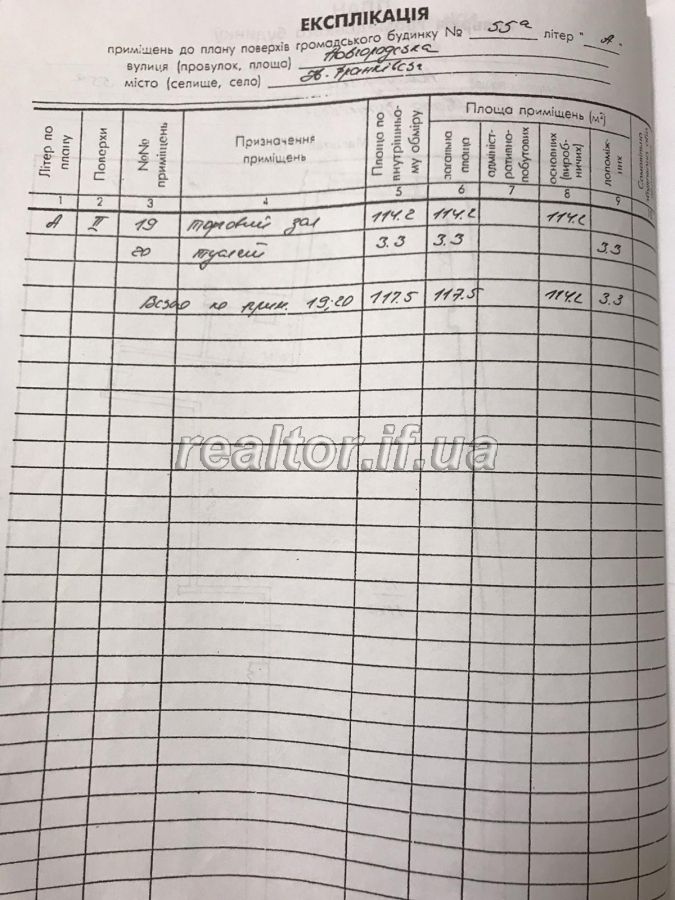 ЕКСПЛІКАЦІЯ
приміщень до плану поверхів громадського будинку № 55а літер " А.
вулиця (провулок, площа) Новгородська
місто (селище, село) Ів. Франківськ
Літер по плану
Поверхи
№№ приміщень
Призначення приміщень
Площа по внутрішньому обміру
Площа приміщень (м²)
загальна площа
адміністративно-побутових
основних (виробничих)
допоміжних
1 2 3 4 5 6 7 8 9
А II 19 торговий зал 114.2 114.2 114.2
20 туалет 3.3 3.3 3.3
Всього по прим. 19; 20 117.5 117.5 114.2 3.3
realtor.if.ua